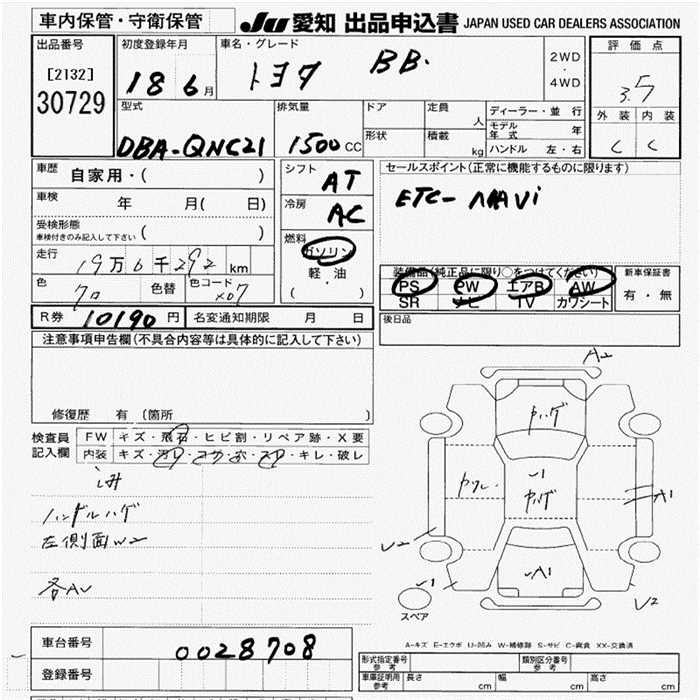 車内保管・守衛保管
JU 愛知 出品申込書 JAPAN USED CAR DEALERS ASSOCIATION
出品番号
[2132]
30729
初度登録年月
18 6月
車名・グレード
トヨタ BB.
2WD
・
4WD
評価点
3.5
外装 内装
C C
型式
DBA-QNC21
排気量
1500 CC
ドア
定員
人
形状
積載
kg
ディーラー・並行
モデル年式 年
ハンドル 左・右
車歴
自家用・( )
車検
年 月( 日)
受検形態
車検付きのみ記入して下さい ( )
走行
19万6千292km
色
クロ
色替
色コード
X07
シフト
AT
冷房
AC
燃料
ガソリン
軽・油
( )
セールスポイント(正常に機能するものに限ります)
ETC- NAVi
装備品(純正品に限り○をつけてください)
PS PW エアB AW
SR ナビ TV カワシート
新車保証書
有・無
R券 10190円 名変通知期限 月 日
後日品
注意事項申告欄(不具合内容等は具体的に記入して下さい)
修復歴 有(箇所 )
検査員
記入欄
FW キズ・飛石・ヒビ割・リペア跡・X要
内装 キズ・汚レ・コゲ・穴・スレ・キレ・破レ
シミ
ハンドルハゲ
左側面W2
各AU
A2
カハゲ
カワレ
-1
カハゲ
A1
U2
-1
A1
U2
スペア
A-キズ E-エクボ U-凹み W-補修跡 S-サビ C-腐食 XX-交換済
車台番号
0028708
登録番号
形式指定番号
参考
類別区分番号
参考
車庫証明用
参考
長さ cm 幅 cm 高さ cm